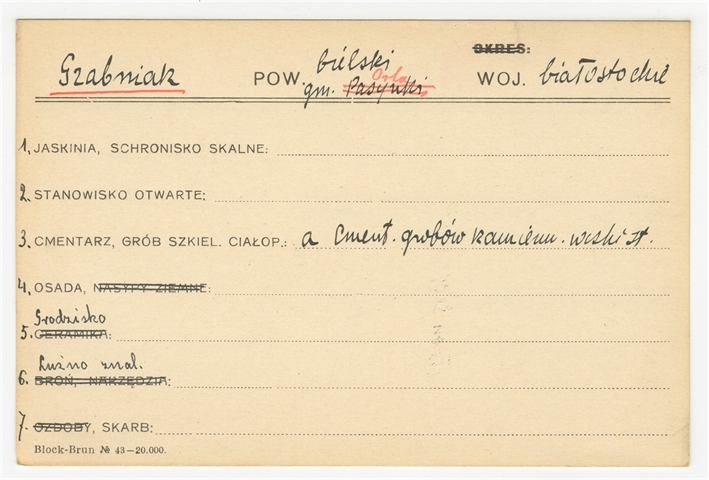 OKRES:
Grabniak POW. bielski WOJ. białostockie
gm. Pasynki Orla
1. JASKINIA, SCHRONISKO SKALNE:
2. STANOWISKO OTWARTE:
3. CMENTARZ, GRÓB SZKIEL. CIAŁOP.: a Cment. grobów kamienn.
4. OSADA, NASYPY ZIEMNE:
Grodzisko
5. CERAMIKA:
Luźno znal.
6. BROŃ, NARZĘDZIA:
7. OZDOBY, SKARB:
Block-Brun № 43—20.000.